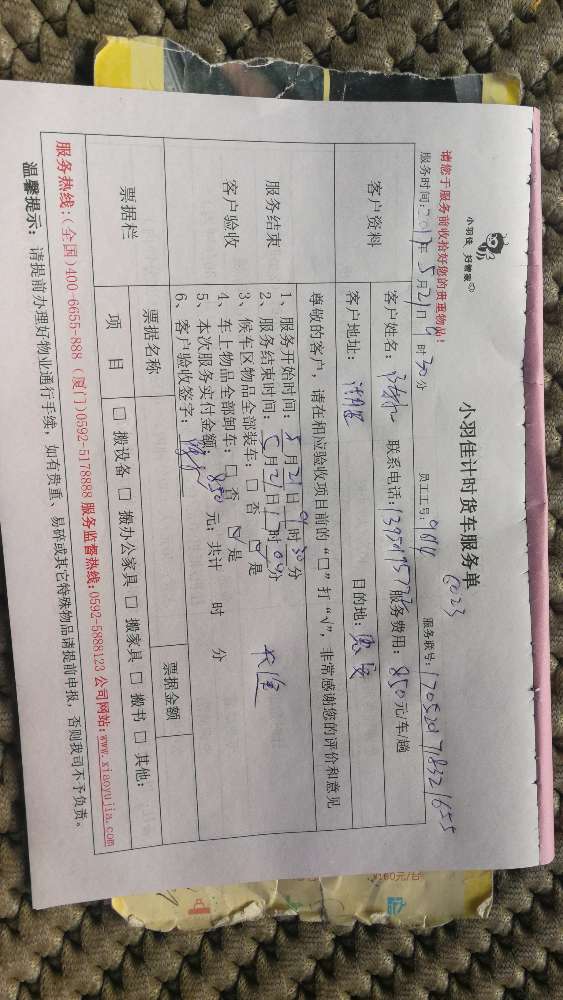 小羽佳 好管家
小羽佳计时货车服务单
6023
请您于服务前收拾好您的贵重物品！
服务时间：2017年5月21日 时30分 员工工号 9614 服务账号：
客户资料
客户姓名： 联系电话： 服务费用：850元/车/趟
客户地址： 目的地：惠安
尊敬的客户，请在相应验收项目前的“□”打“√”，非常感谢您的评价和意见
服务结束
客户验收
1、服务开始时间：5月21日9时30分
2、服务结束时间：5月21日 时 分
3、候车区物品全部装车：□ 否 ☑ 是
4、车上物品全部卸车：□ 否 ☑ 是
5、本次服务实付金额 850 元；共计 时 分
6、客户验收签字：
票据栏
票据名称 票据金额
项 目 □ 搬设备 □ 搬办公家具 □ 搬家具 □ 搬书 □ 其他：
服务热线：（全国）400-6655-888 （厦门）0592-5178888 服务监督热线：0592-5888123 公司网站：www.xiaoyujia.com
温馨提示： 请提前办理好物业通行手续，如有贵重、易碎或其它特殊物品请提前申报，否则我司不予负责。
¥160元/台